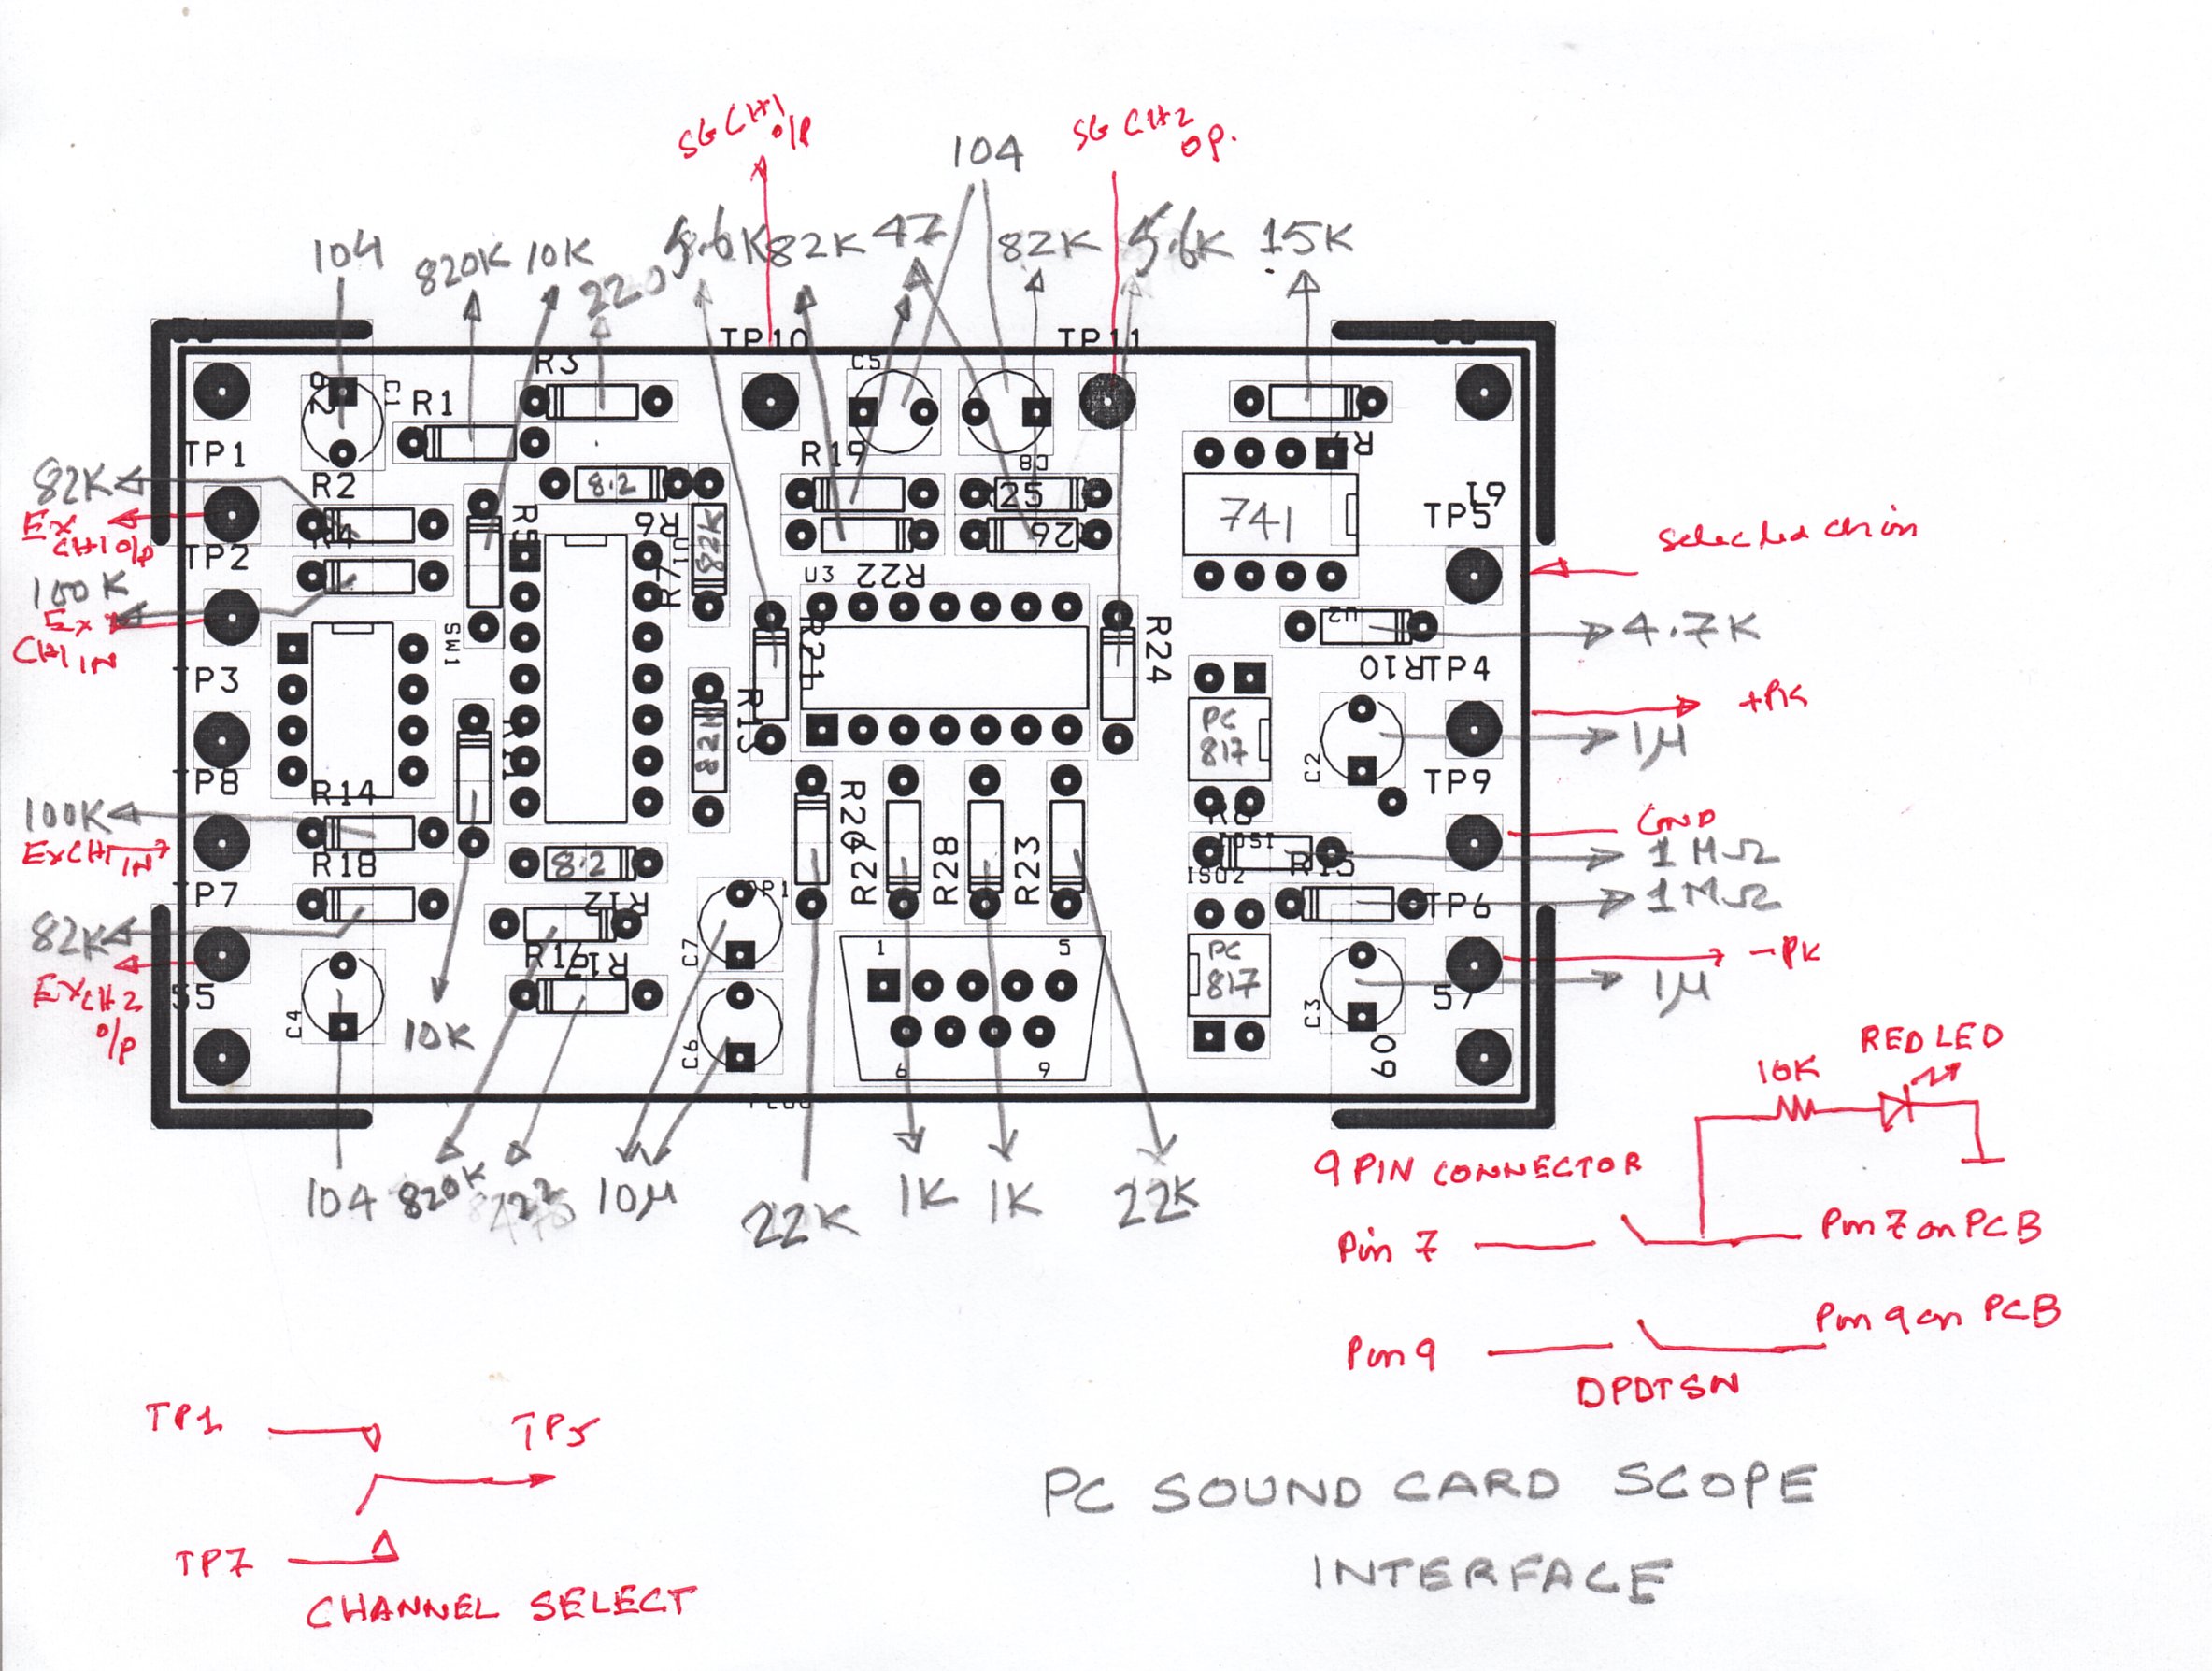 SG CH1
O/P
SG CH2
OP.
104
104
820K
10K
220
5.6K
82K
47
82K
5.6K
15K
TP10
TP11
R3
C5
C1
62
R1
R7
C8
R19
TP1
82K
R2
8.2
25
61
741
TP5
Ex
CH1 O/P
R5
R6
U1
82K
26
Selected ch in
R4
TP2
100K
U3
R22
Ex
CH1 IN
SW1
R21
R24
U2
4.7K
R10
TP4
TP3
R13
+PK
PC
817
C2
1µ
82K
R11
TP8
TP9
R14
R20
100K
R8
GND
ExCH1 IN
R27
R28
R23
1MΩ
R18
8.2
ISO2
R15
TP7
R12
TP6
1MΩ
82K
C7
1
5
PC
817
-PK
R16
R17
EXCH2
O/P
55
57
1µ
C4
C6
C3
6
9
60
10K
RED LED
10K
104
820K
10µ
22K
1K
1K
22K
9 PIN CONNECTOR
Pin 7
Pin 7 on PCB
Pin 9
Pin 9 on PCB
DPDT SW
TP1
TP5
TP7
CHANNEL SELECT
PC SOUND CARD SCOPE
INTERFACE